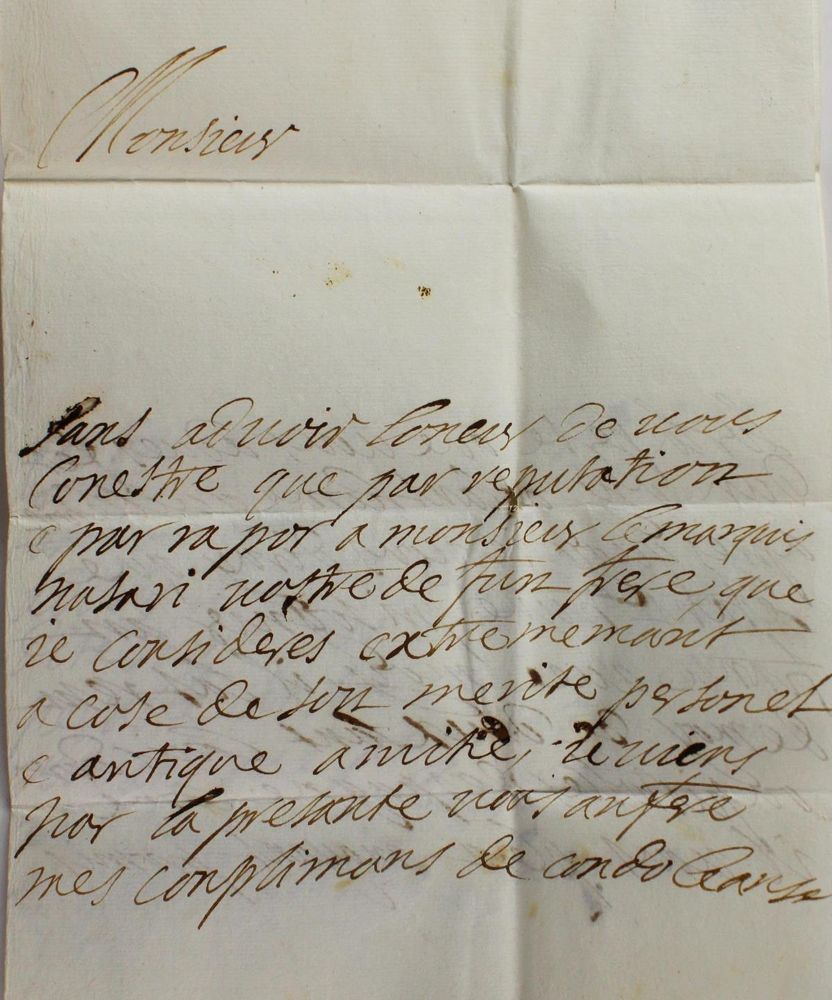 Monsieur
sans advoir loneur de vous
conestre que par reputation
e par rapor a monsieur le marquis
nasari vostre defun frere, que
ie consideres extrememant
a cose de son merite personel
e antique amitie, ie viens
par la presante vous an fere
mes conplimans de condoleanse